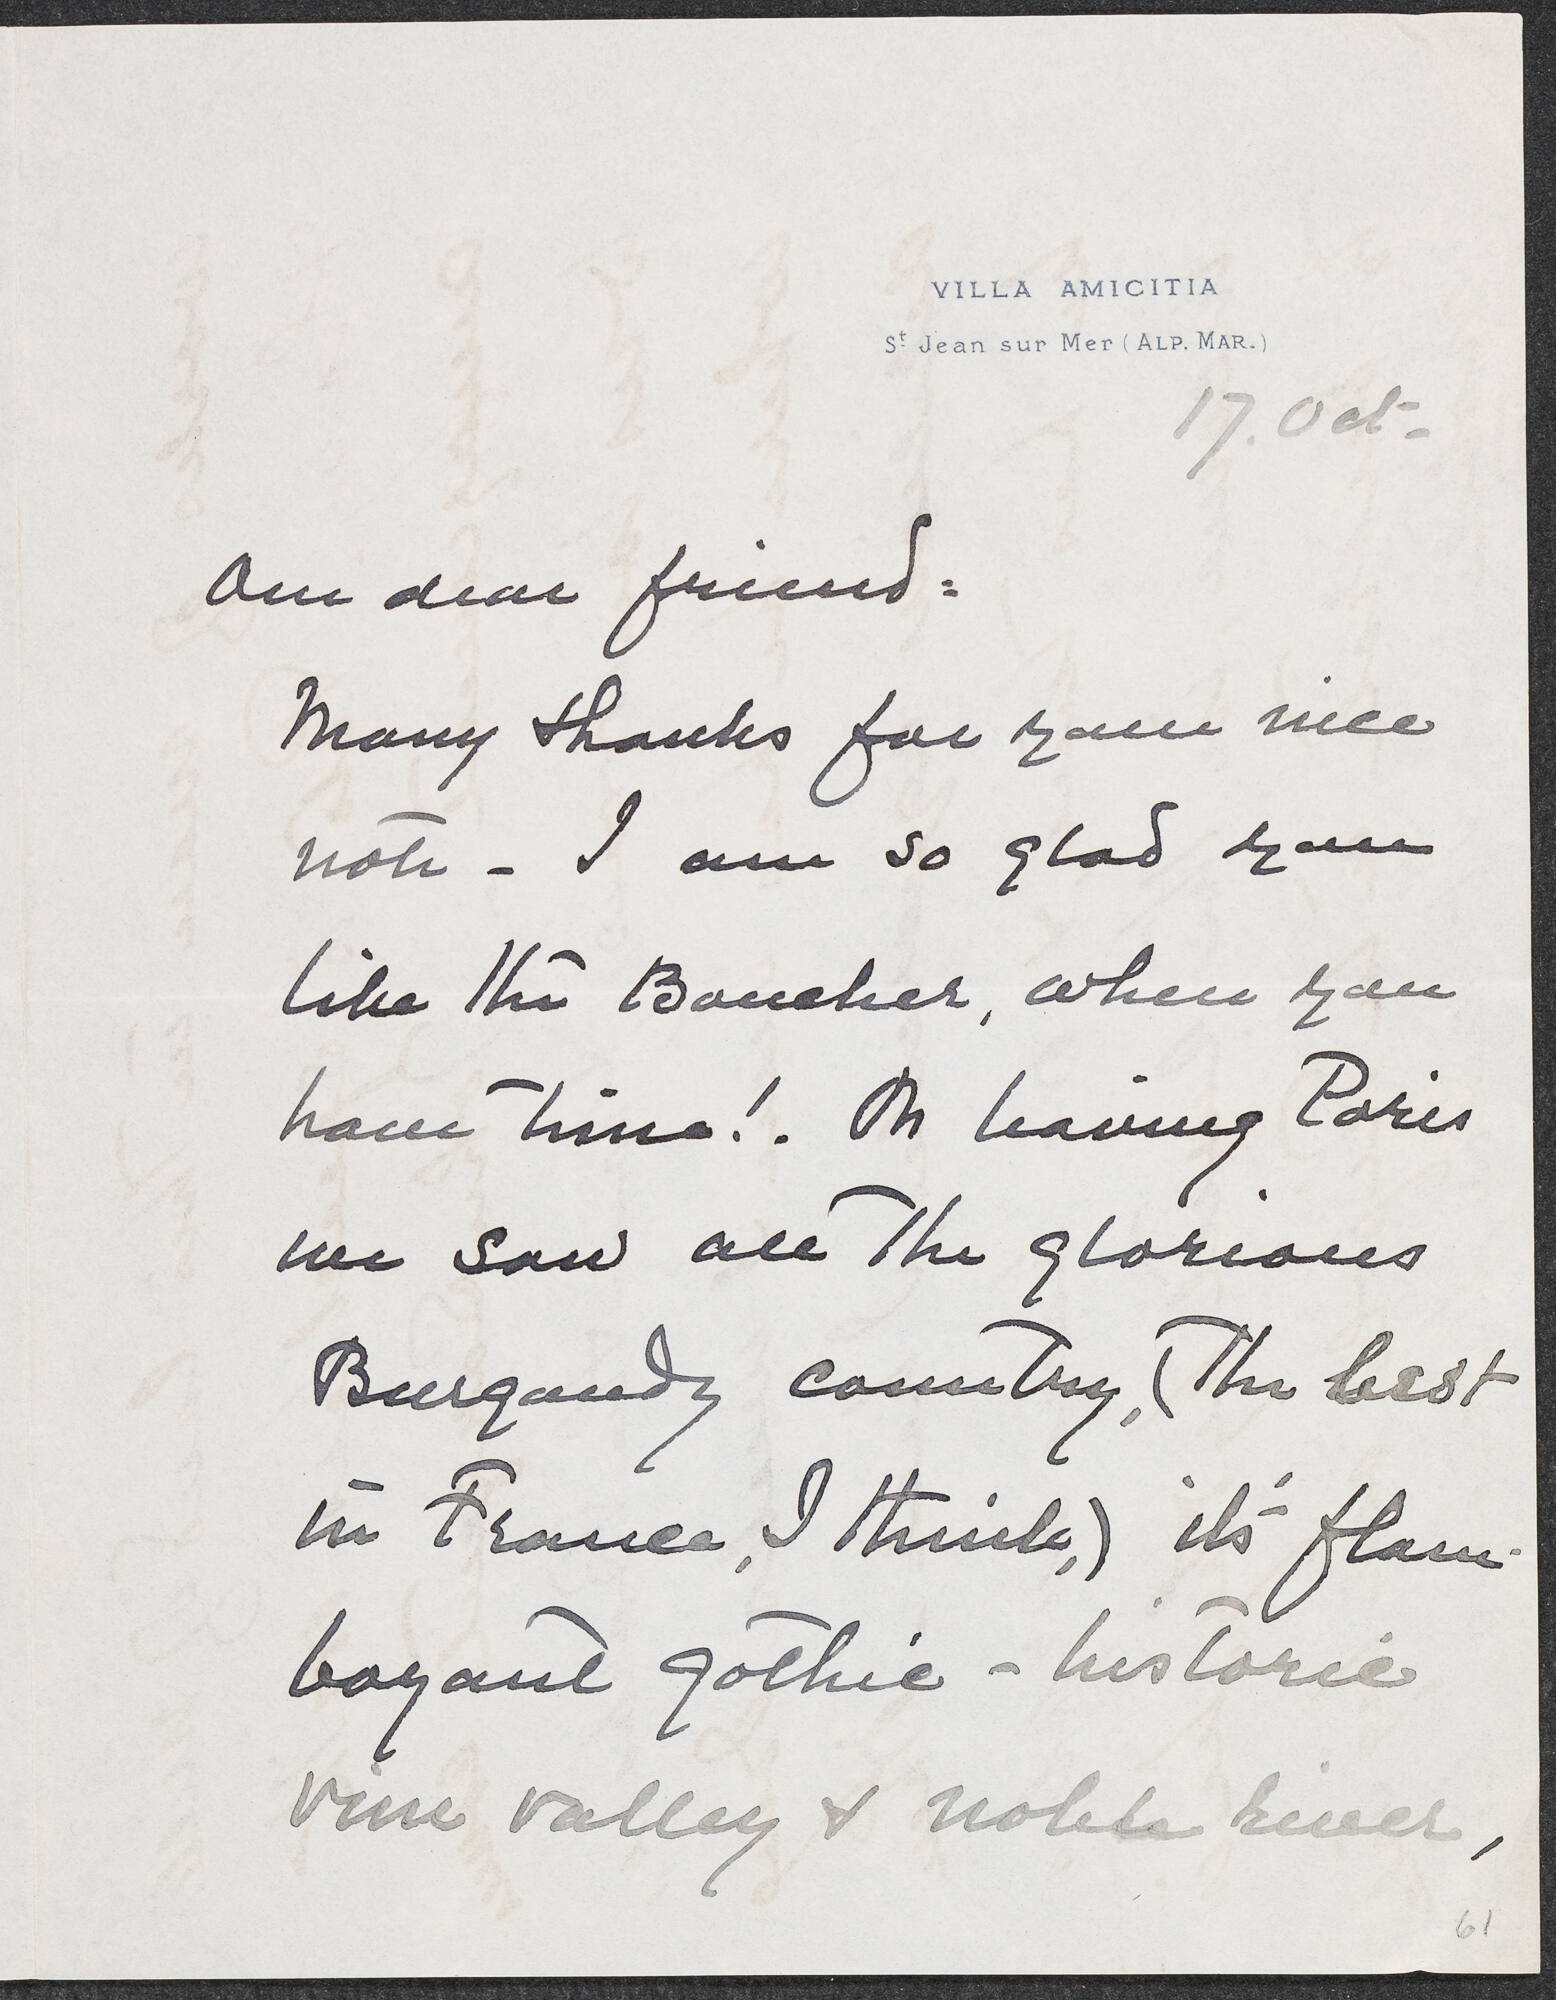 VILLA AMICITIA
St Jean sur Mer (ALP. MAR.)
17. Oct-
Our dear friend:
Many thanks for your nice
note - I am so glad you
like the Boucher, when you
have time!. On leaving Paris
we saw all the glorious
Burgandy country, (the best
in France, I think,) it's flam-
boyant gothic - historic
vine valley & noble river,
61